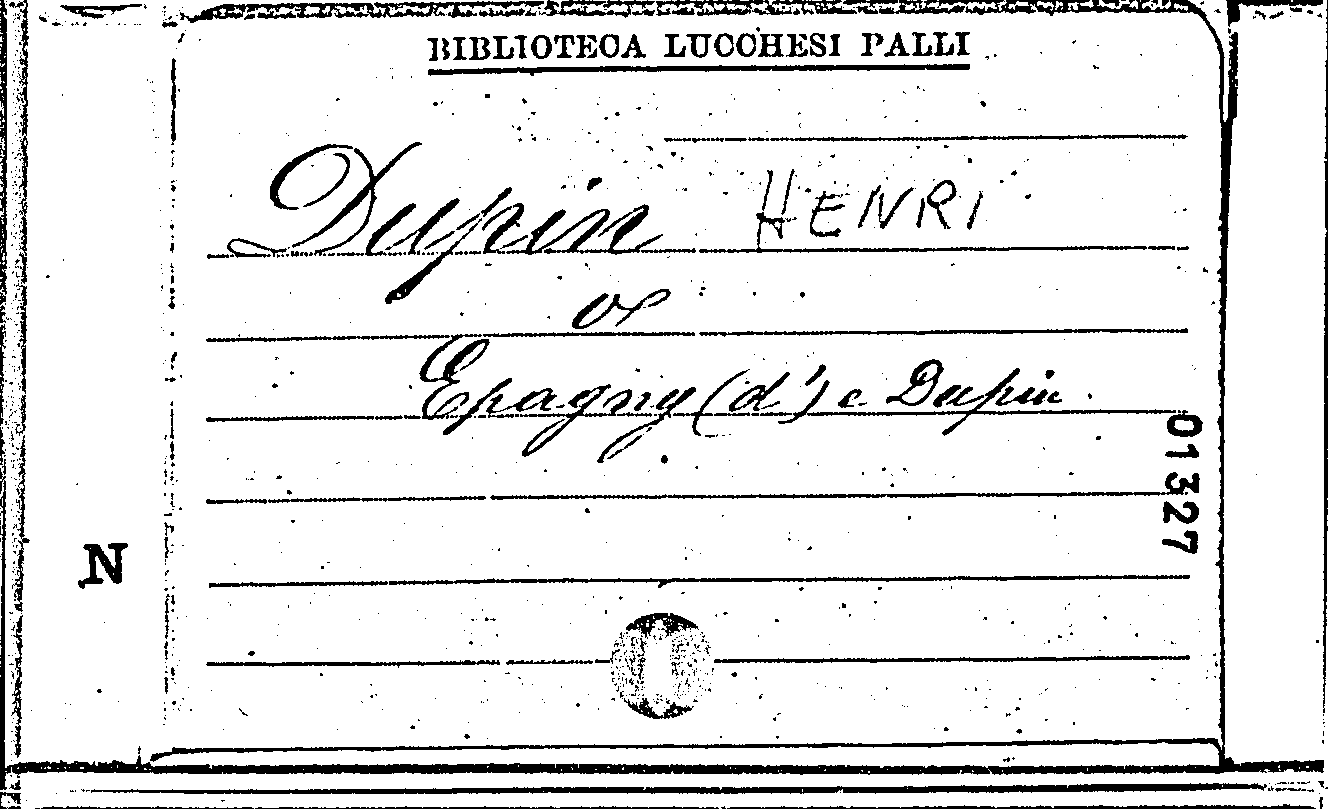 BIBLIOTECA LUCCHESI PALLI
Dupin HENRI
Epagny (d') e Dupin.
01327
N